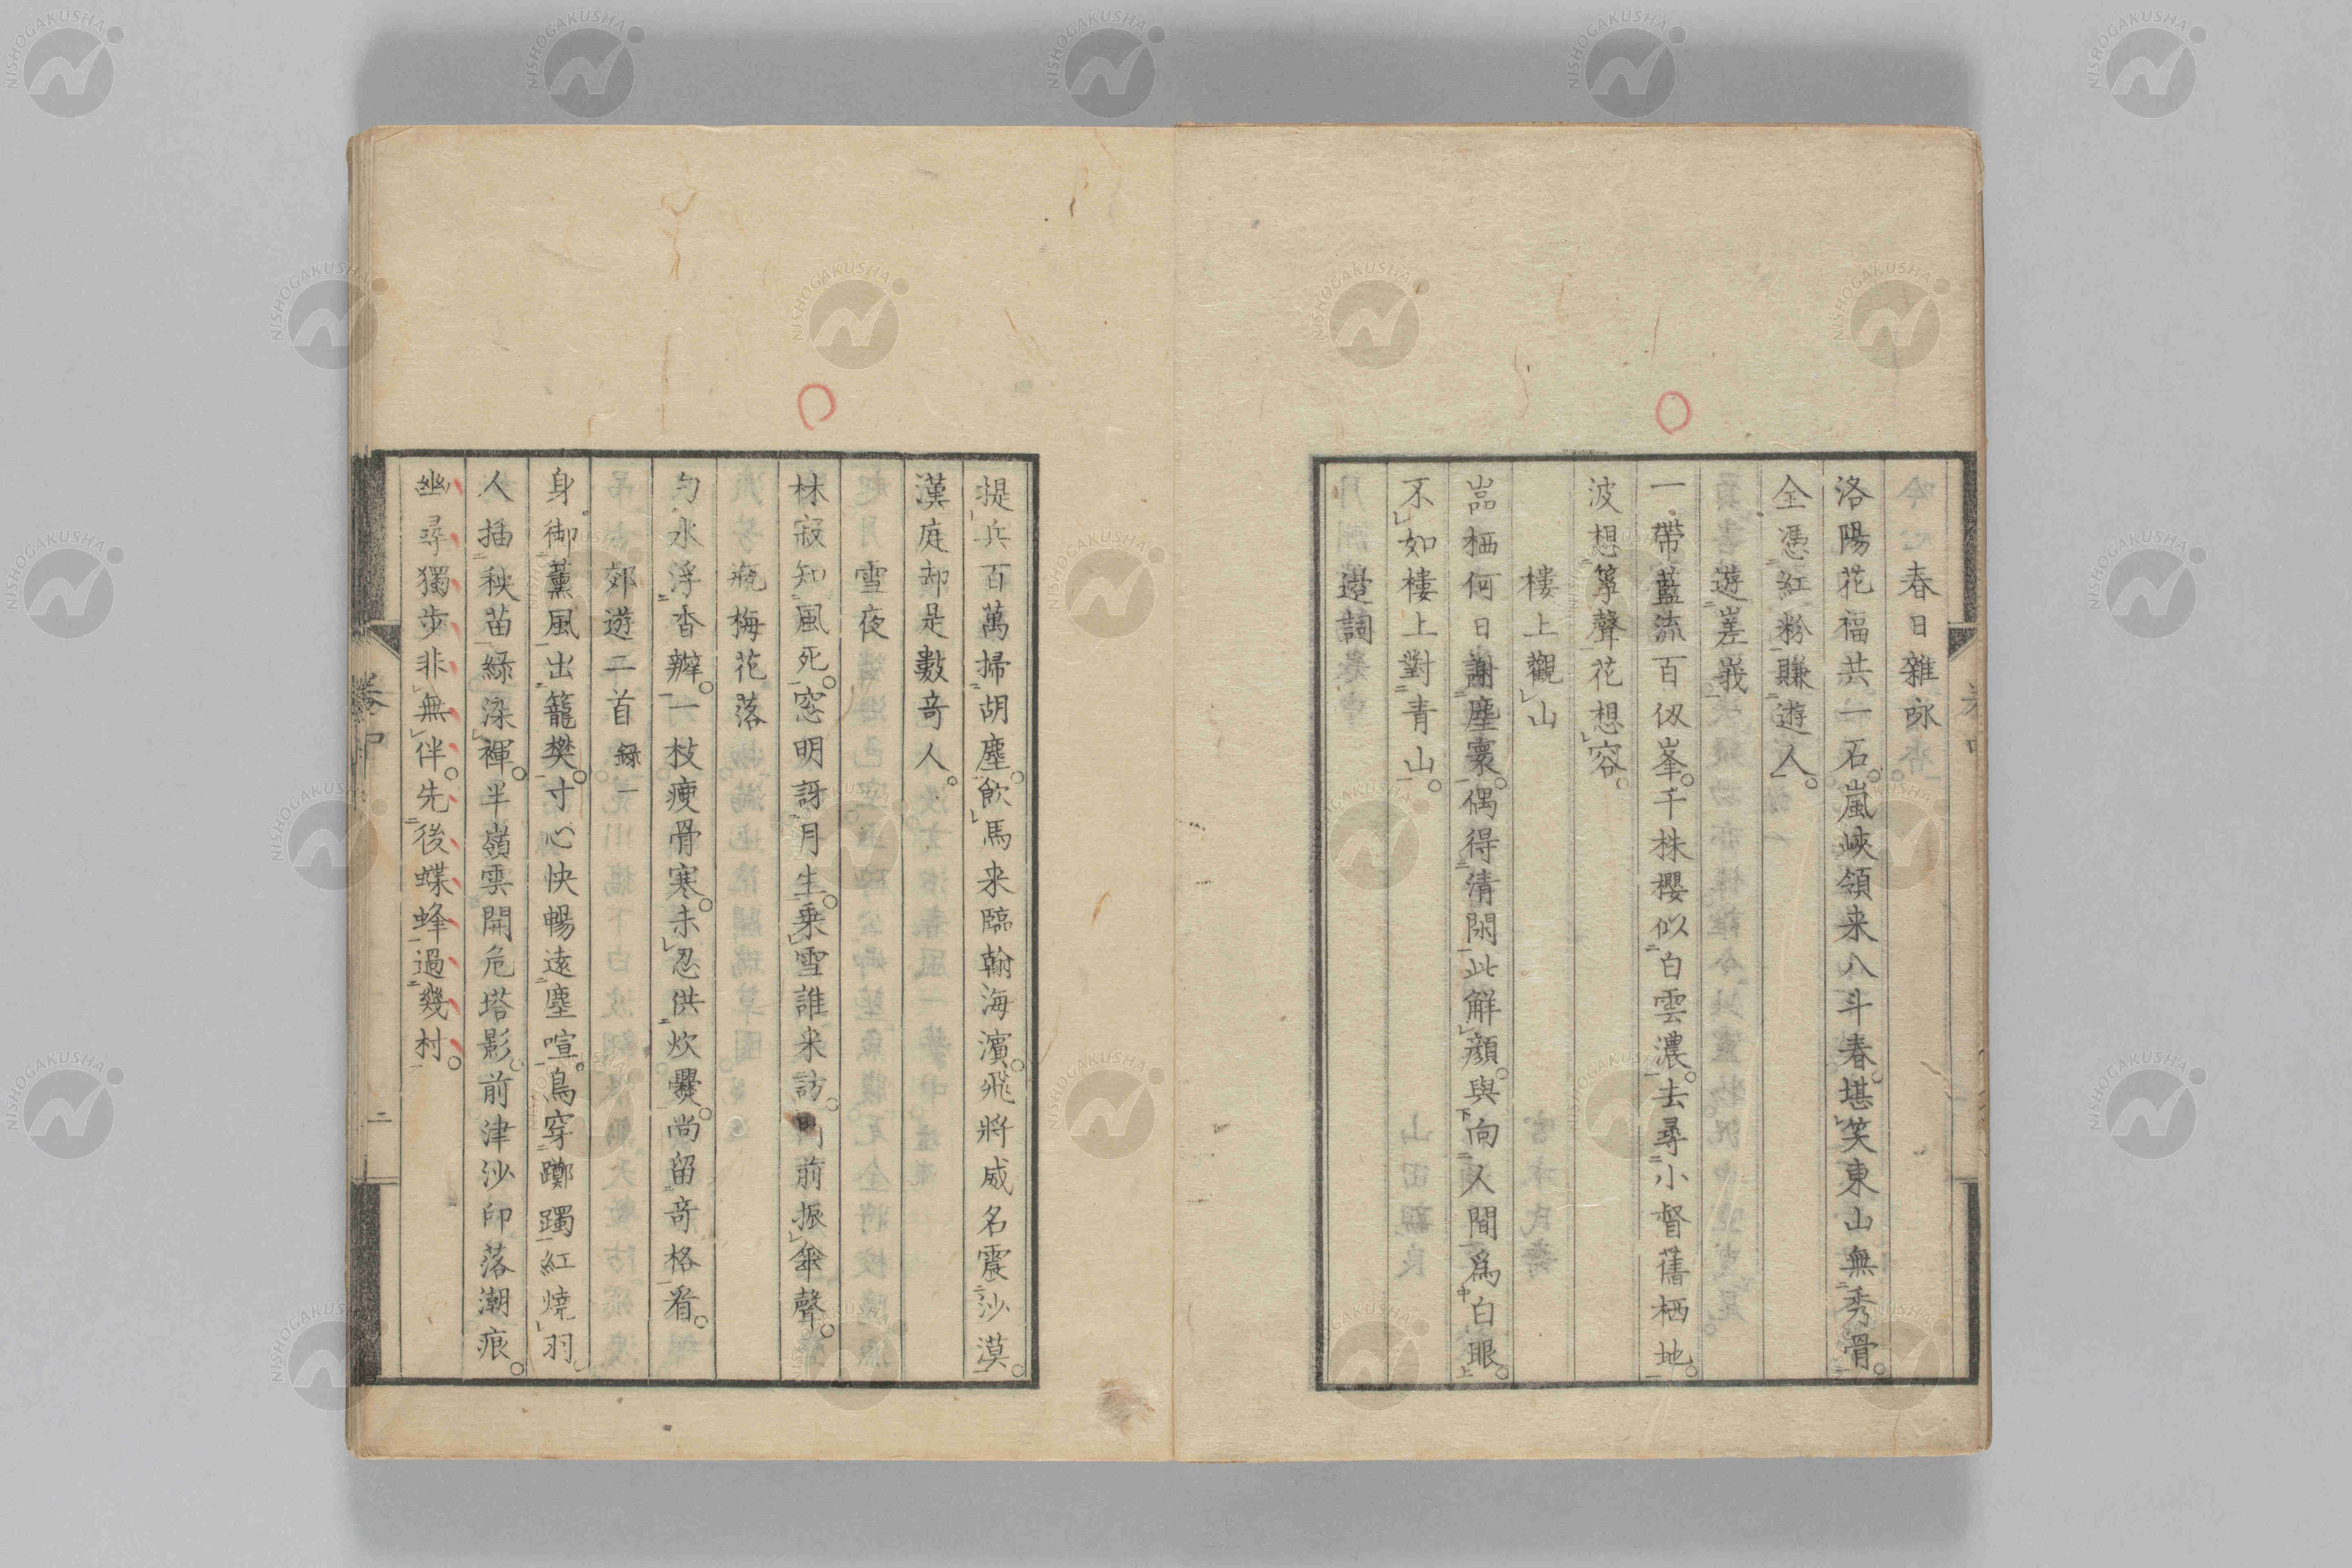 春日雜詠
洛陽花福共一石。嵐峽領来八斗春。堪笑東山無秀骨。
全憑紅粉賺遊人。
遊嵳峩
一帶藍流百仭峯。千株櫻似白雲濃。去尋小督舊栖地。
波想箏聲花想容。
樓上觀山
嵓栖何日謝塵寰。偶得清閑此解顔。與向人間爲白眼。
不如樓上對青山。
邉詞
提兵百萬掃胡塵。飲馬来臨翰海濱。飛將威名震沙漠。
漢庭却是數竒人。
雪夜
林寂知風死。窓明訝月生。乗雪誰来訪。門前振傘聲。
瓶梅花落
勺水浮杳瓣。一枝痩骨寒。未忍供炊爨。尚留竒格看。
郊遊二首 録一
身御薫風出籠樊。寸心快暢遠塵喧。鳥穿躑躅紅燒羽。
人插秧苗緑染褌。半嶺雲開危塔影。前津沙印落潮痕。
幽尋獨步非無伴。先後蝶蜂過幾村。
卷中
二
NISHOGAKUSHA